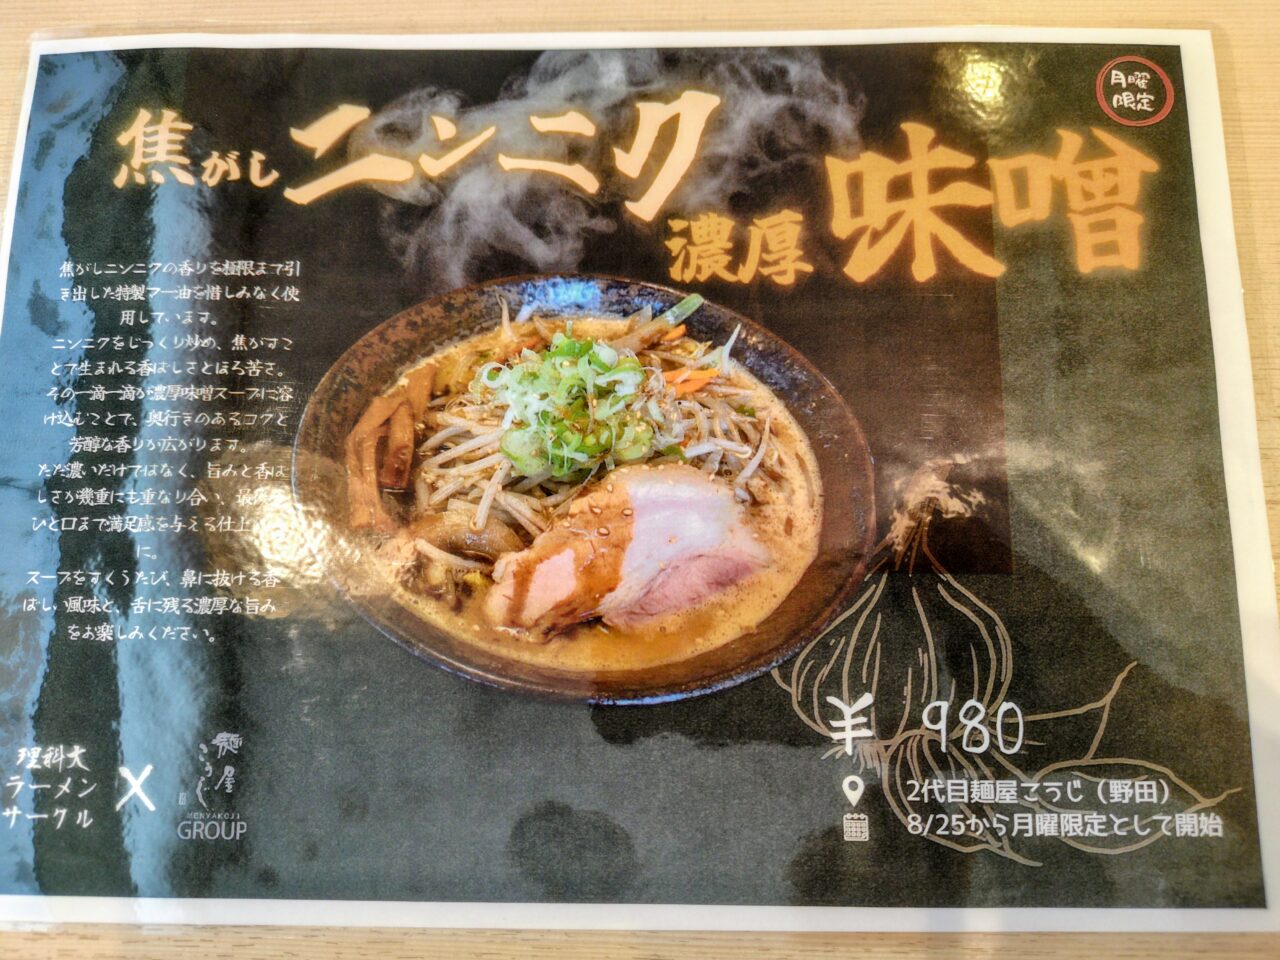 月曜
限定
焦がしニンニク
濃厚味噌
焦がしニンニクの香りを極限まで引
き出した特製マー油を惜しみなく使
用しています。
ニンニクをじっくり炒め、焦がすこ
とで生まれる香ばしさとほろ苦さ。
その一滴一滴が濃厚味噌スープに溶
け込むことで、奥行きのあるコクと
芳醇な香りが広がります。
ただ濃いだけではなく、旨みと香ば
しさが幾重にも重なり合い、最後の
ひと口まで満足感を与える仕上
に。
スープをすくうたび、鼻に抜ける香
ばしい風味と、舌に残る濃厚な旨み
をお楽しみください。
¥ 980
2代目麺屋こうじ（野田）
8/25から月曜限定として開始
理科大
ラーメン
サークル
×
麺屋
こうじ
MENYAKOJI
GROUP